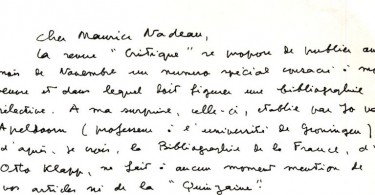 Cher Maurice Nadeau,
La revue "Critique" se propose de publier au
mois de Novembre un numéro spécial consacré à m
œuvre et dans lequel doit figurer une bibliographie
sélective. A ma surprise, celle-ci, établie par Jo va
Apeldoorn (professeur à l'université de Groningen)
d'après, je crois, la Bibliographie de la France, d'
Otto Klapp, ne fait à aucun moment mention de
vos articles ni de la "Quinzaine".